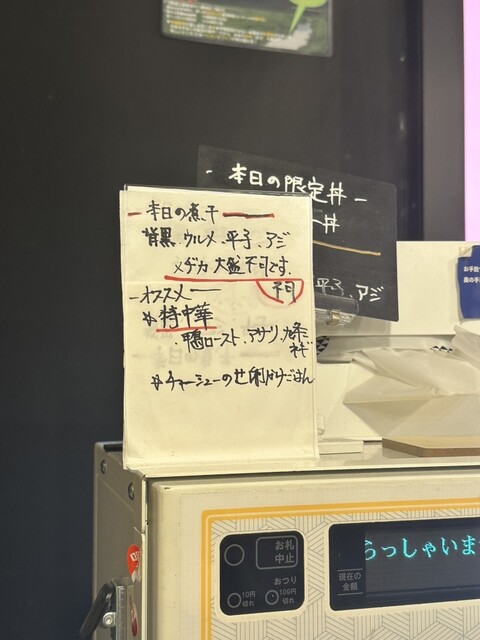 - 本日の限定丼 -
丼
平子、アジ
- 本日の煮干 -
背黒、ウルメ、平子、アジ
メヂカ 大盛不可です。
不可
- オススメ -
特中華
・鴨ロースト、アサリ、九条
ネギ
チャーシューのせ削りごはん
お札
中止
おつり
10円
切れ
100円
切れ
現在の
金額
らっしゃいま